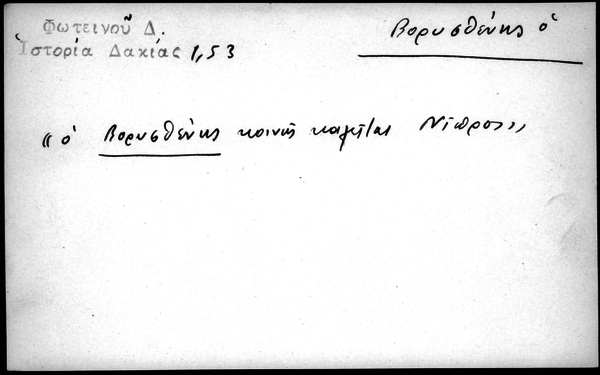 Φωτεινοῦ Δ.
Ἱστορία Δακίας 1,53
Βορυσθένης ὁ
« ὁ Βορυσθένης κοινῶς καλεῖται Νίπρος»